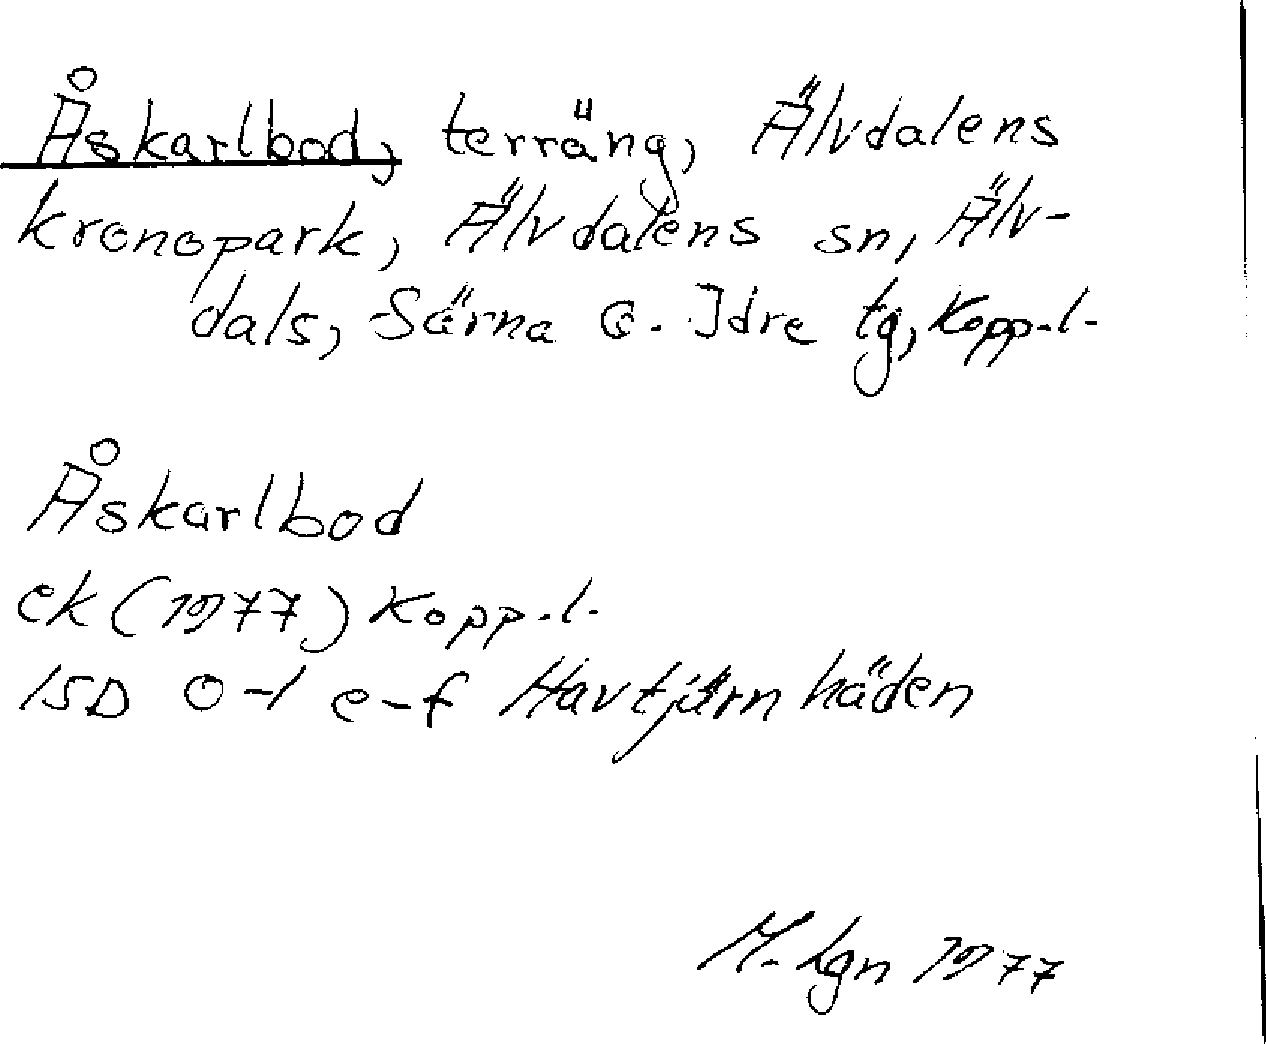 Åskarlbod, terräng, Älvdalens
kronopark, Älvdalens sn, Älv-
dals, Särna o. Idre tg, Kopp.l.
Åskarlbod
ek (1977) Kopp.l.
15D 0-1 e-f Havtjärnhäden
M. Lgn 1977